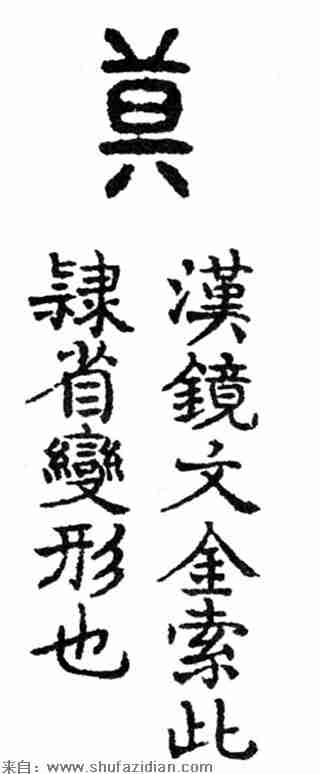 莫
漢鏡文金索此
隸省變形也
来自：www.shufazidian.com